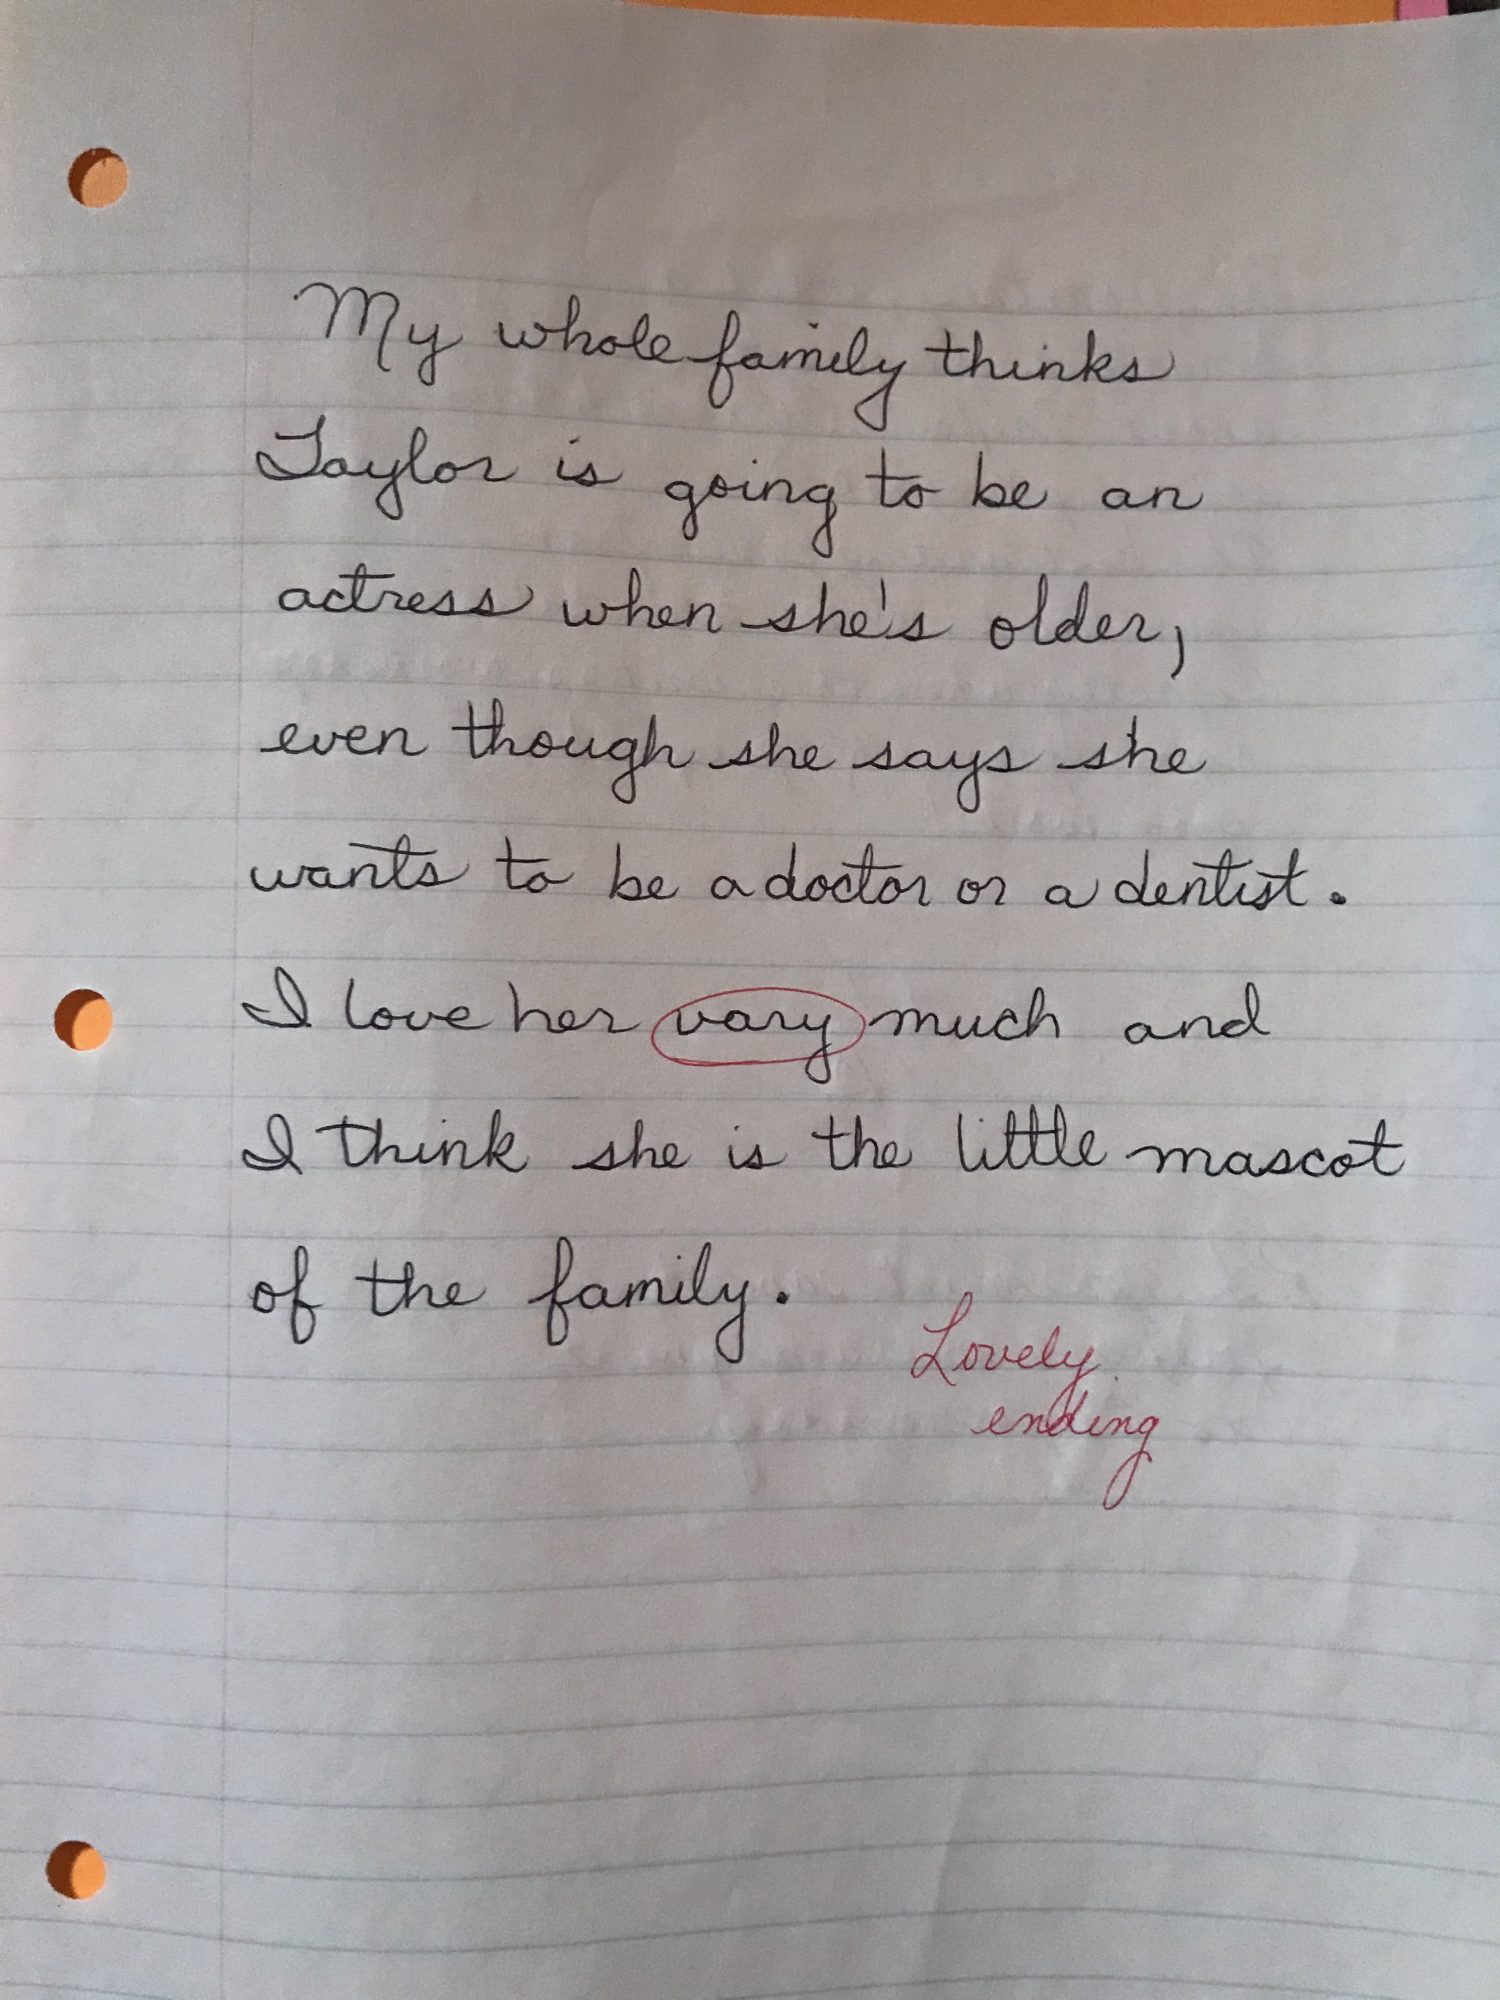 My whole family thinks
Taylor is going to be an
actress when she's older,
even though she says she
wants to be a doctor or a dentist.
I love her vary much and
I think she is the little mascot
of the family.
Lovely
ending